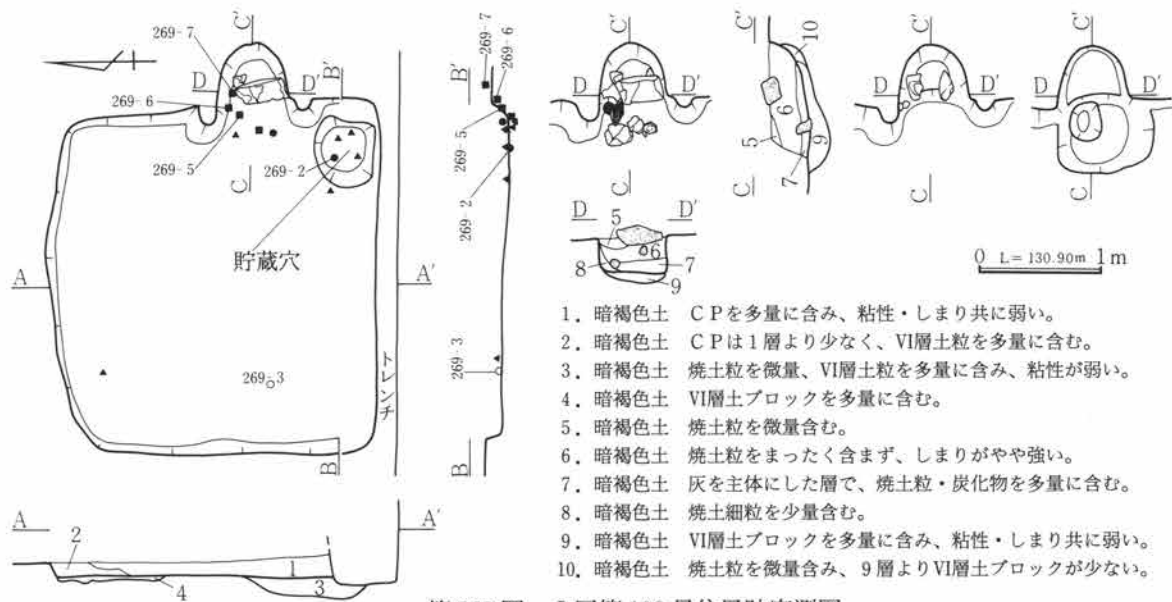 269-7
C'
269-6
D
D'
B'
269-6
269-5
269-2
C
貯蔵穴
A
A'
269-3
トレンチ
B
A
A'
2
1
4
3
269-7
269-6
B'
269-5
269-2
269-3
B
C'
D
D'
C
C'
10
6
5
9
7
C
D
D'
C
C'
D
D'
C
D
D'
5
6
8
7
9
0 L=130.90m 1m
1. 暗褐色土 CPを多量に含み、粘性・しまり共に弱い。
2. 暗褐色土 CPは1層より少なく、VI層土粒を多量に含む。
3. 暗褐色土 焼土粒を微量、VI層土粒を多量に含み、粘性が弱い。
4. 暗褐色土 VI層土ブロックを多量に含む。
5. 暗褐色土 焼土粒を微量含む。
6. 暗褐色土 焼土粒をまったく含まず、しまりがやや強い。
7. 暗褐色土 灰を主体にした層で、焼土粒・炭化物を多量に含む。
8. 暗褐色土 焼土細粒を少量含む。
9. 暗褐色土 VI層土ブロックを多量に含み、粘性・しまり共に弱い。
10. 暗褐色土 焼土粒を微量含み、9層よりVI層土ブロックが少ない。